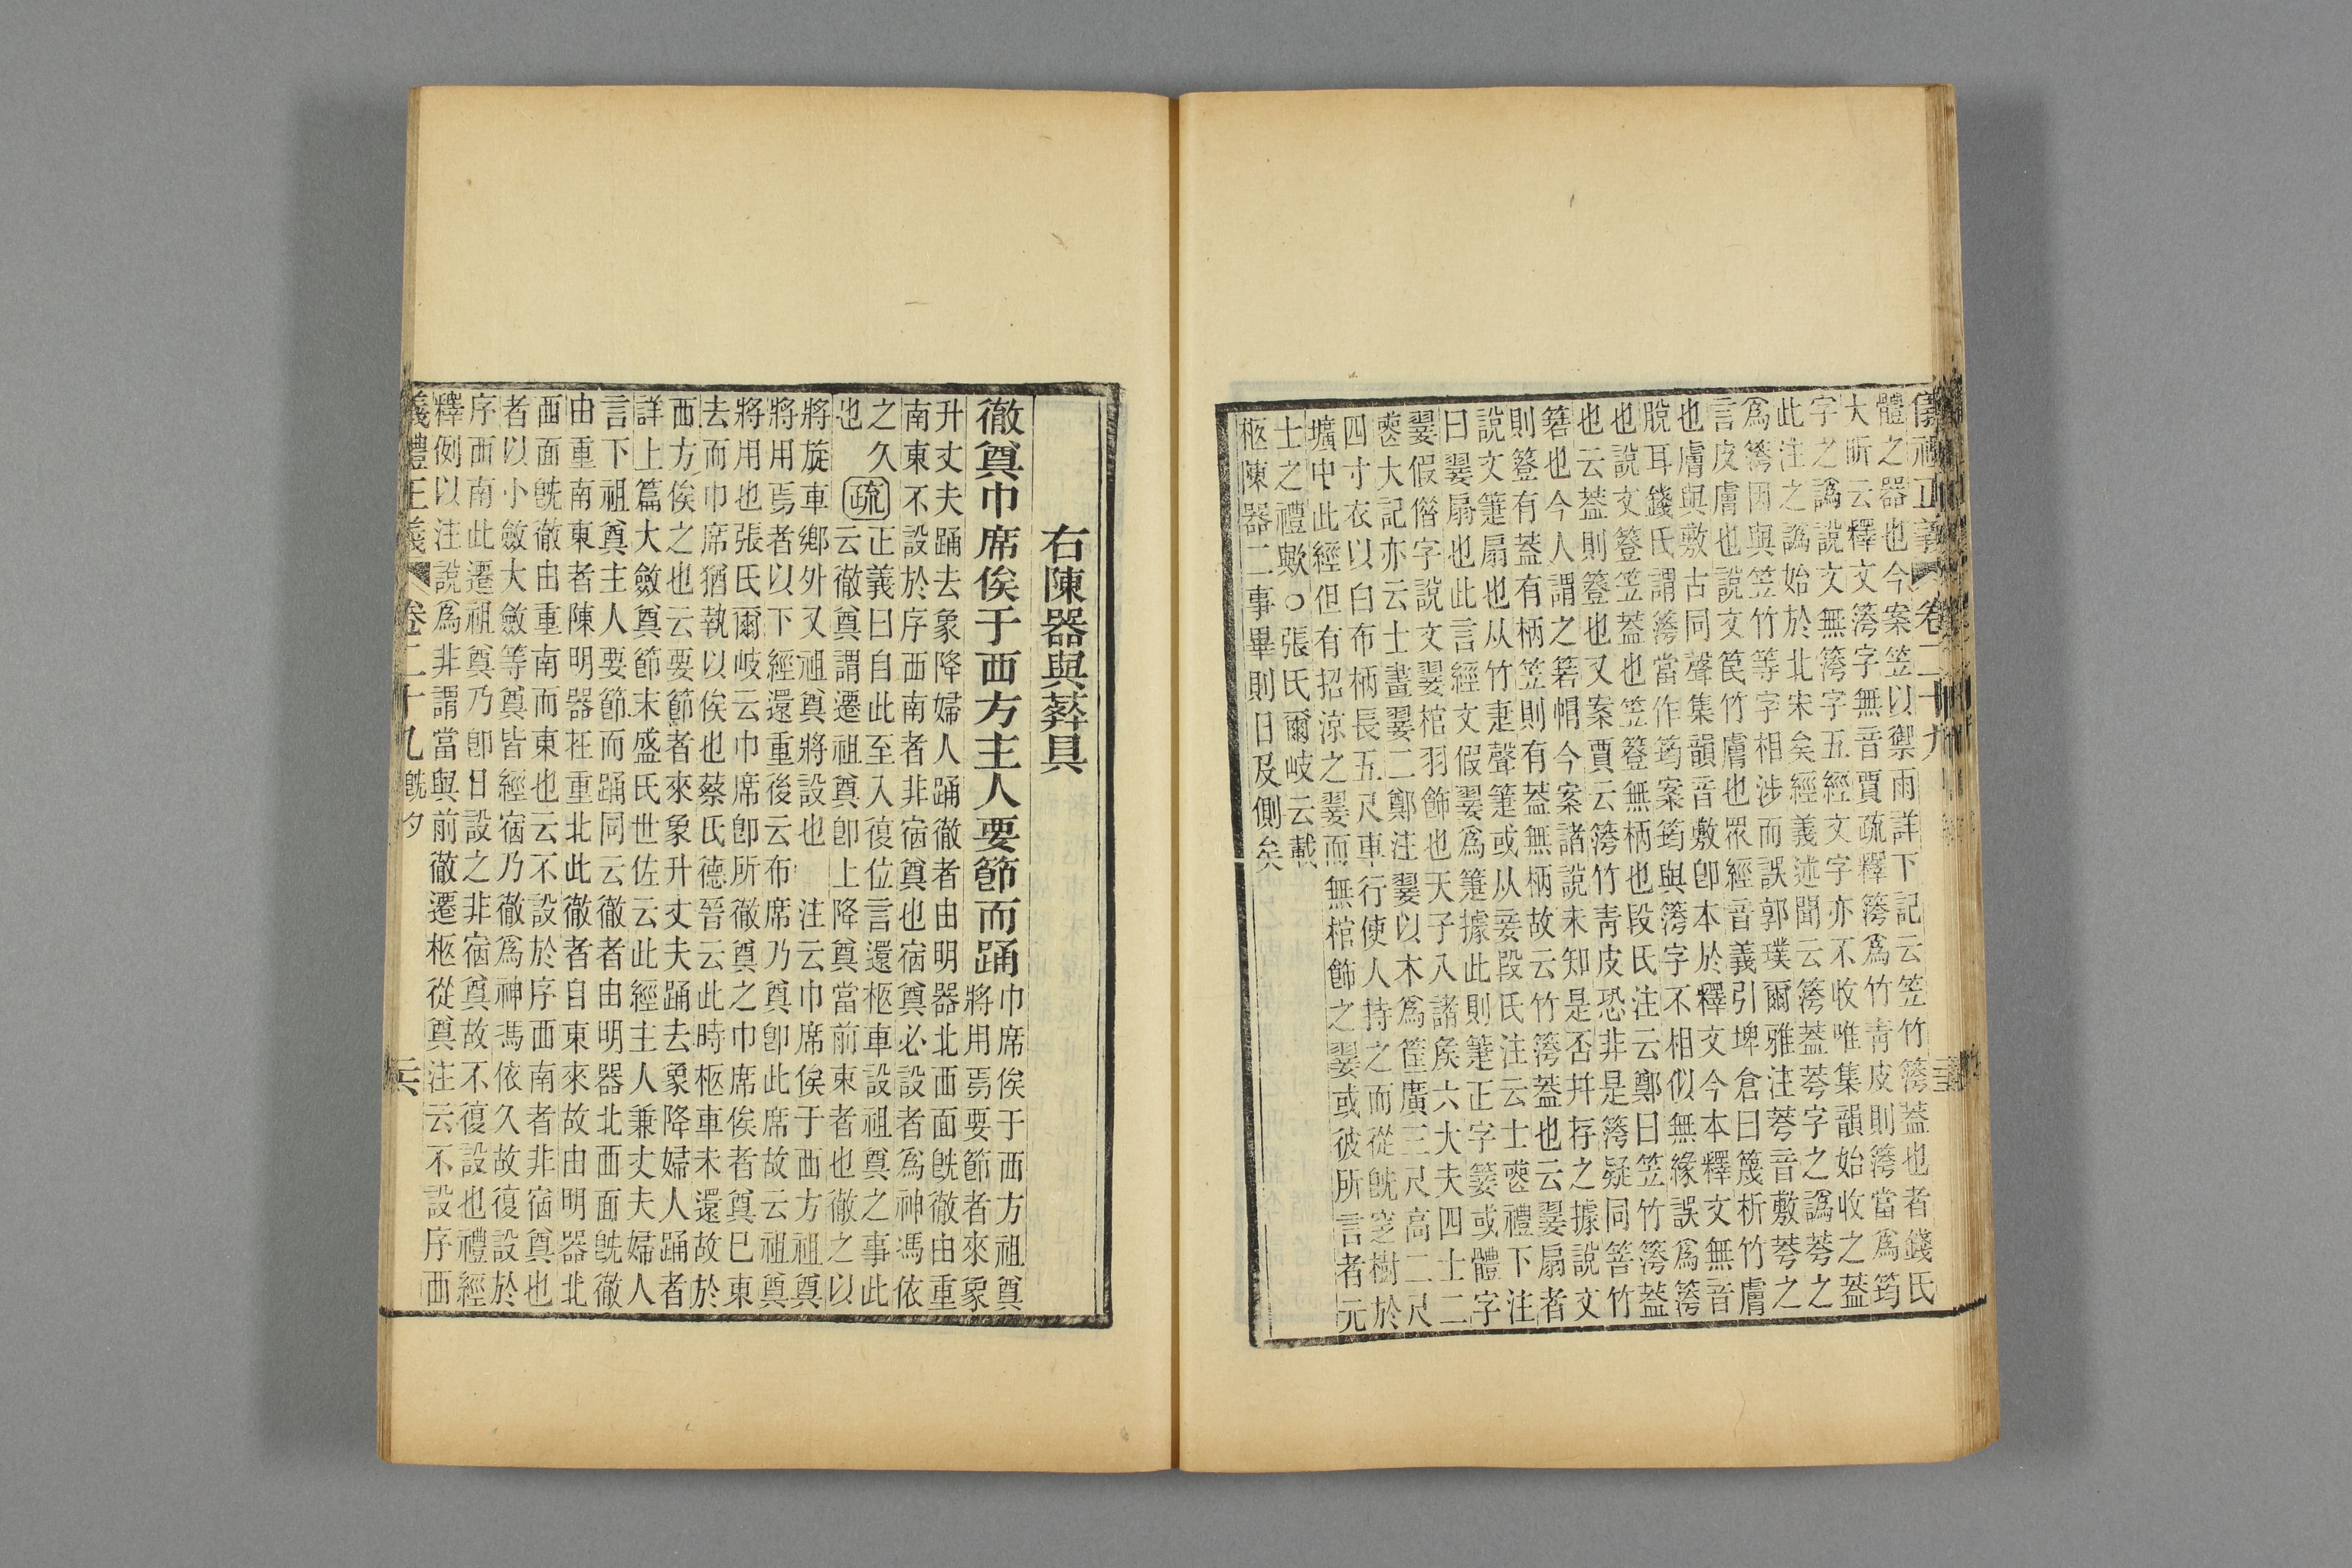 儀禮正義 卷二十九
體之器也今案笠以禦雨詳下記云笠竹䈰蓋也者錢氏
大昕云釋文䈰字無音賈疏釋䈰爲竹青皮則䈰當爲筠
字之譌說文無䈰字五經文字亦不收唯集韻始收之蓋
此注之譌始於北宋矣經義述聞云䈰蓋荂字之譌荂之
爲䈰因與笠竹等字相涉而誤郭璞爾雅注荂音敷荂之
言皮膚也說文筤竹膚也眾經音義引埤倉曰篾析竹膚
也膚與敷古同聲集韻音敷卽本於釋文今本釋文無音䈰
脫耳錢氏謂䈰當作筠案筠與䈰字不相似無緣誤爲䈰
也說文簦笠蓋也笠簦無柄也段氏注云鄭曰笠竹䈰蓋
也云蓋則簦也又案賈云䈰竹青皮恐非是䈰疑同箁竹
箬也今人謂之箬帽今案諸說未知是否并存之據說文
則簦有蓋有柄笠則有蓋無柄故云竹䈰蓋也云翣扇者
說文箑扇也从竹疌聲箑或从妾段氏注云士喪禮下注
曰翣扇也此言經文假翣爲箑據此則箑正字䈉或體字
翣假借字說文翣棺羽飾也天子八諸矦六大夫四士二
喪大記亦云士畫翣二鄭注翣以木爲筐廣三尺高二尺
四寸衣以白布柄長五尺車行使人持之而從旣窆樹於
壙中此經但有招涼之翣而無棺飾之翣或彼所言者元
士之禮歟○張氏爾岐云載
柩陳器二事畢則日及側矣
右陳器與葬具
徹奠巾席俟于西方主人要節而踊 巾席俟于西方祖奠
將用焉要節者來象
升丈夫踊去象降婦人踊徹者由明器北西面旣徹由重
南東不設於序西南者非宿奠也宿奠必設者爲神馮依
之久
也 疏 正義曰自此至入復位言還柩車設祖奠之事此
云徹奠謂遷祖奠卽上降奠當前束者也徹之以
將旋車鄉外又祖奠將設也 注云巾席俟于西方祖奠
將用焉者以下經還重後云布席乃奠卽此席故云祖奠
將用也張氏爾岐云巾席卽所徹奠之巾席俟者奠已東
去而巾席猶執以俟也蔡氏德晉云此時柩車未還故於
西方俟之也云要節者來象升丈夫踊去象降婦人踊者
詳上篇大斂奠節末盛氏世佐云此經主人兼丈夫婦人
言下祖奠主人要節而踊同云徹者由明器北西面旣徹
由重南東者陳明器在重北此徹者自東來故由明器北
西面旣徹由重南而東也云不設於序西南者非宿奠也
者以小斂大斂等奠皆經宿乃徹爲神馮依久故復設於
序西南此遷祖奠乃卽日設之非宿奠故不復設也禮經
釋例以注說爲非謂當與前徹遷柩從奠注云不設序西
儀禮正義 卷二十九 旣夕